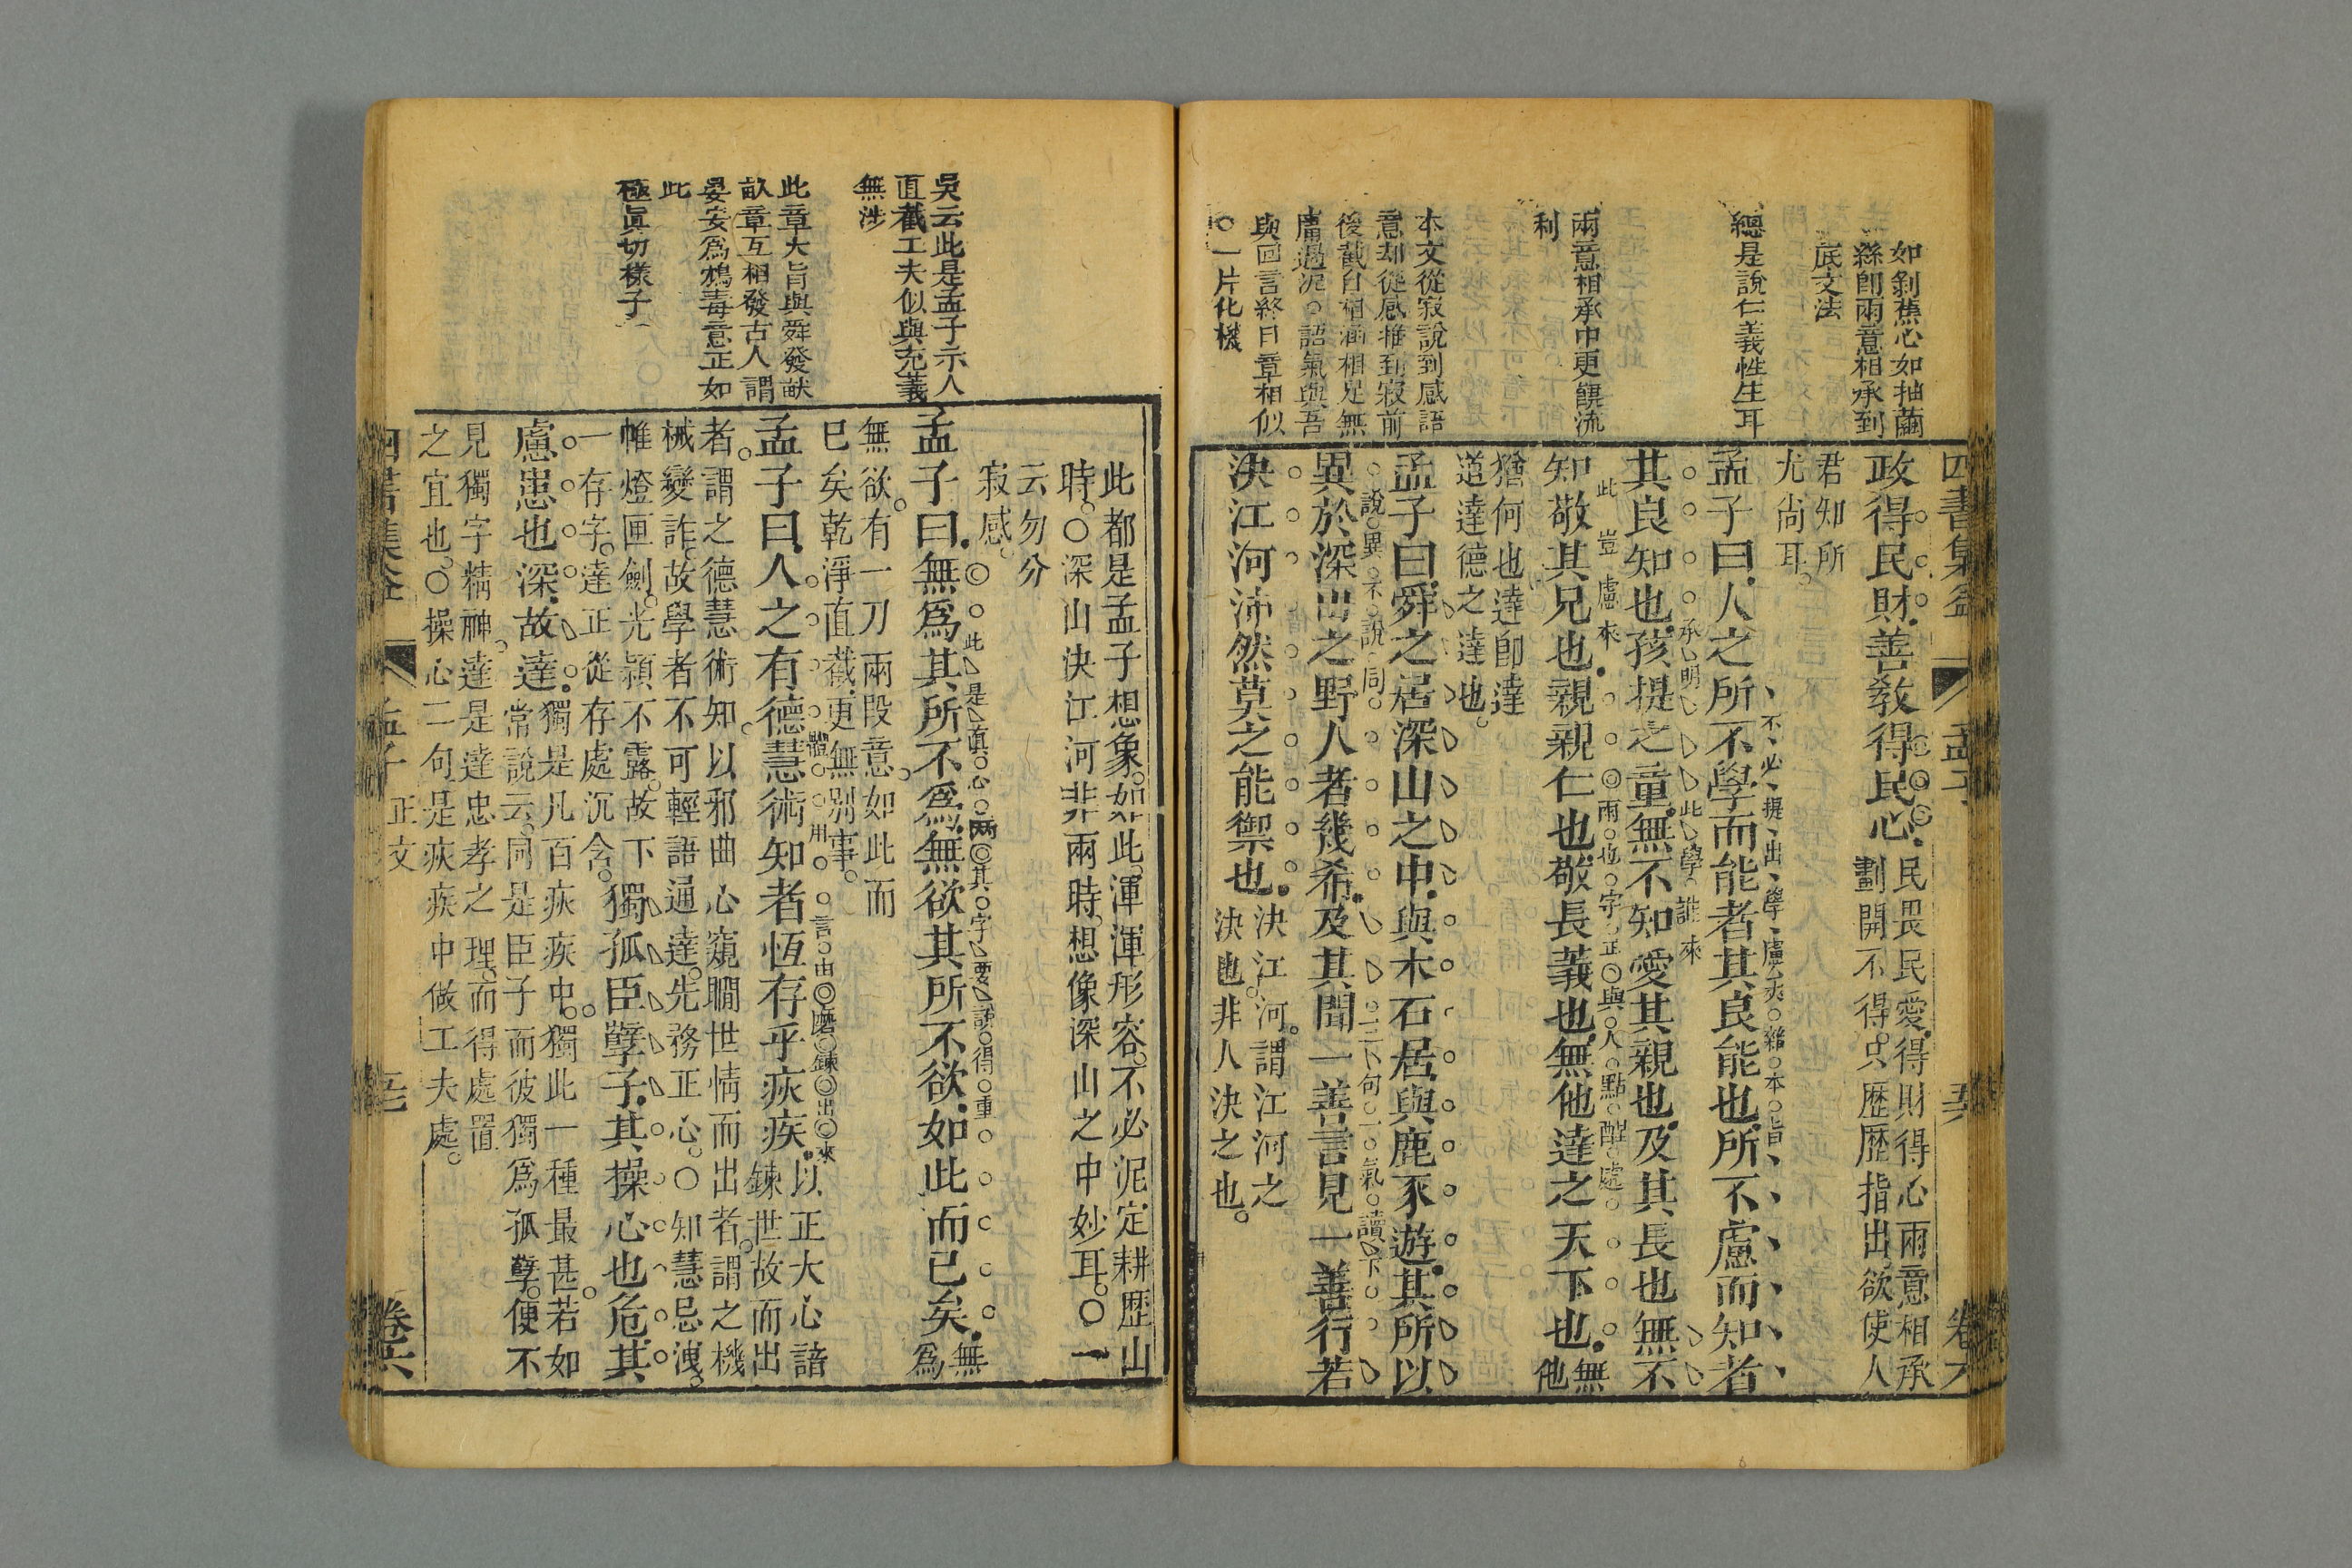 如剝蕉心如抽繭
絲卽兩意相承到
底文法
總是說仁義性生耳
兩意相承中更饌流
利
本文從寂說到感語
意却從感推到寂前
後截自相涵相足無
庸過泥○語氣與吾
與回言終日章相似
○一片化機
政得民財善敎得民心
民畏民愛得財得心兩意相承
劃開不得只歷歷指出欲使人
君知所
尤尚耳
孟子曰人之所不學而能者其良能也所不慮而知者
不必提出學慮夾雜本旨
其良知也孩提之童無不知愛其親也及其長也無不
承明此學誰來
知敬其兄也親親仁也敬長義也無他達之天下也
此豈慮來
兩也字正與人點醒處
無
他
猶何也達卽達
道達德之達也
孟子曰舜之居深山之中與木石居與鹿豕遊其所以
異於深山之野人者幾希及其聞一善言見一善行若
說異不說同
一氣讀下
決江河沛然莫之能禦也
決江河謂江河之
決也非人決之也
四書集
孟子
卷六
吳云此是孟子示人
直截工夫似與充義
無涉
此章大旨與舜發畎
畝章互相發古人謂
晏安爲鴆毒意正如
此
極眞切樣子
此都是孟子想象如此渾渾形容不必泥定耕歷山
時○深山決江河非兩時想像深山之中妙耳○一
云勿分
寂感
孟子曰無爲其所不爲無欲其所不欲如此而已矣
此是眞心兩其字要說得重
無
爲
無欲有一刀兩段意如此而
已矣乾淨直截更無別事
孟子曰人之有德慧術知者恆存乎疢疾
體用
言由磨鍊出來
以正大心諳
鍊世故而出
者謂之德慧術知以邪曲心窺瞯世情而出者謂之機
械變詐故學者不可輕語通達先務正心○知慧忌洩
帷燈匣劍光穎不露故下
一存字達正從存處沉含
獨孤臣孽子其操心也危其
慮患也深故達
獨是凡百疢疾中獨此一種最甚若如
常說云同是臣子而彼獨爲孤孽便不
見獨字精神達是達忠孝之理而得處置
之宜也○操心二句是疢疾中做工夫處
四書集
孟子
正文
卷六